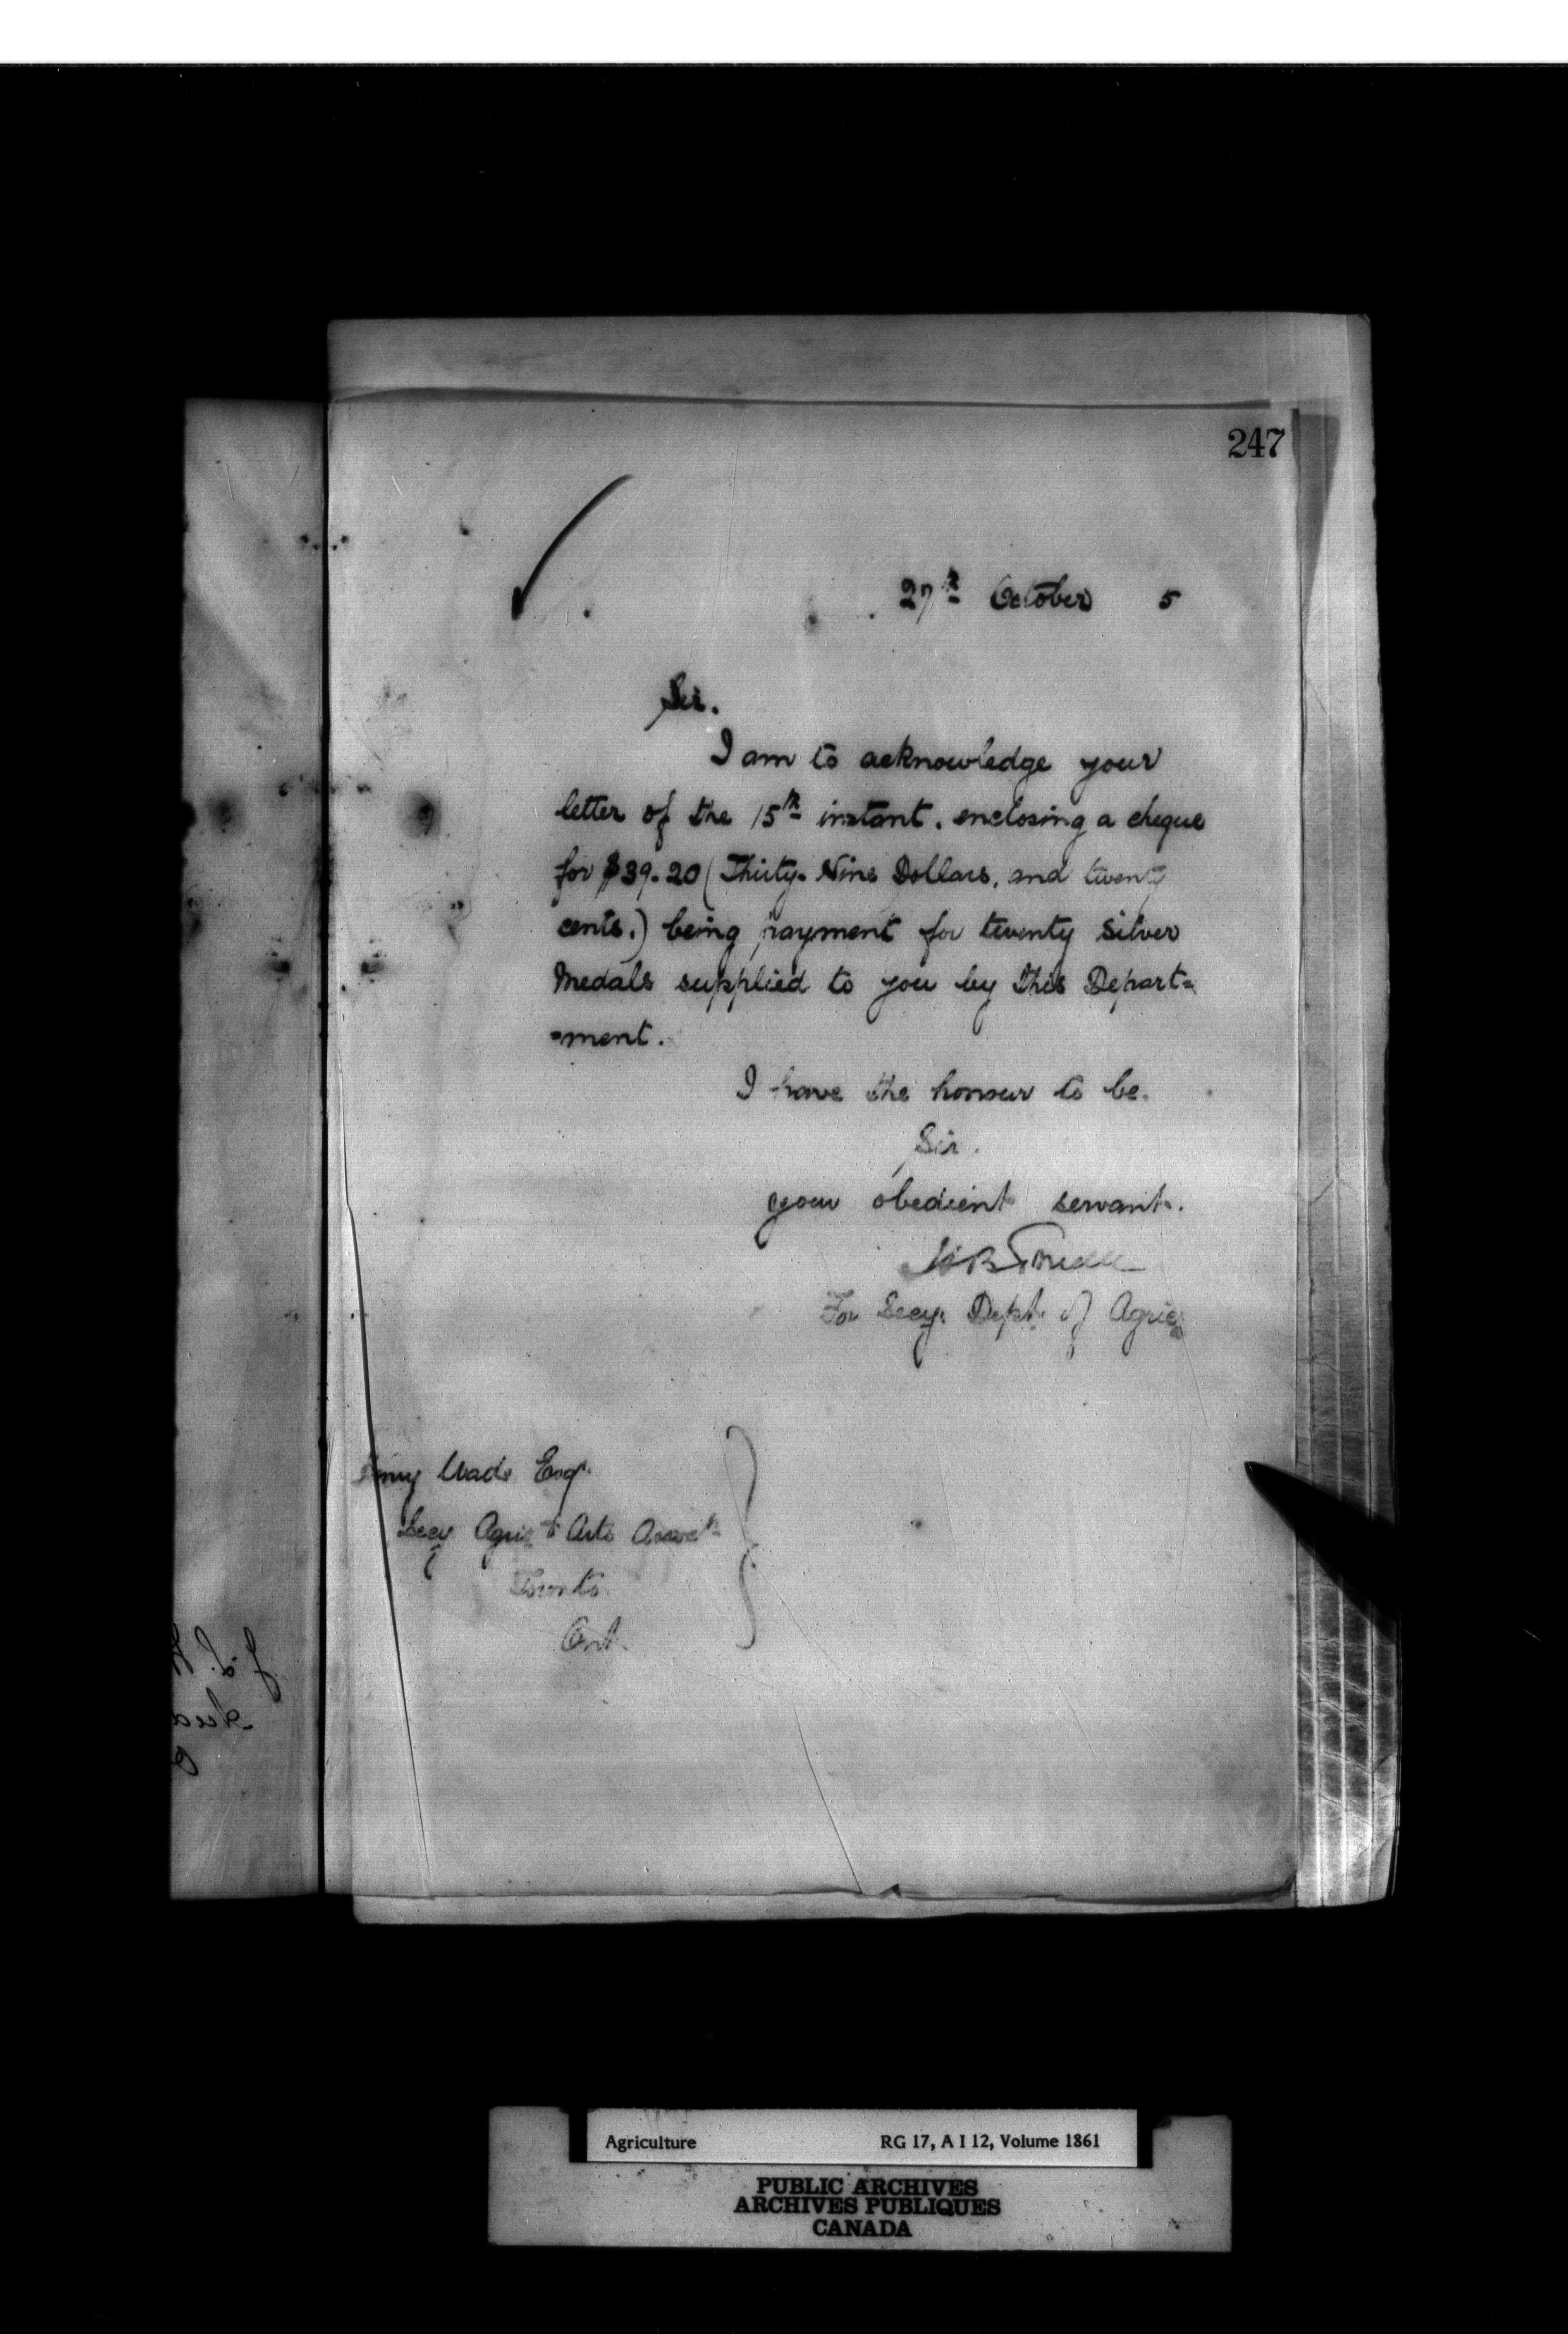 247
27th October 5
Sir.
I am to acknowledge your
letter of the 15th instant. enclosing a cheque
for $39.20 (Thirty-Nine Dollars. and twenty
cents.) being payment for twenty Silver
Medals supplied to you by this Depart=
=ment.
I have the honour to be.
Sir.
your obedient servant.
For Secy. Dept. of Agric
Wade Esqr.
Secy Agric & Arts Assocn
Toronto.
Ont.
Agriculture RG 17, A I 12, Volume 1861
PUBLIC ARCHIVES
ARCHIVES PUBLIQUES
CANADA